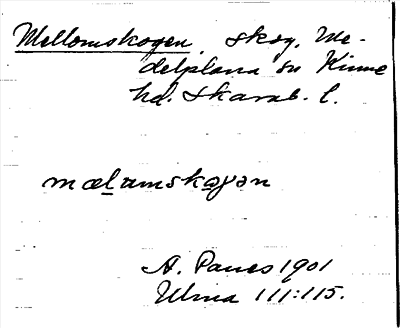 Mellomskogen, skog, Me-
delplana sn Kinne
hd. Skarab. l.
mælamskoγən
A. Paues 1901
Ulma 111:115.